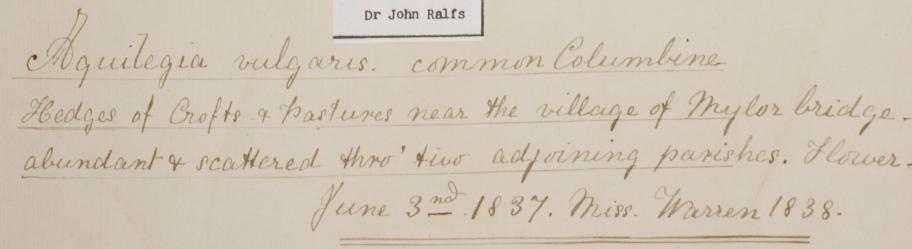 Dr John Ralfs
Aquilegia vulgaris. common Columbine
Hedges of Crofts & Pastures near the village of Mylor bridge -
abundant & scattered thro' two adjoining parishes. Flower -
June 3nd 1837. Miss. Warren 1838.